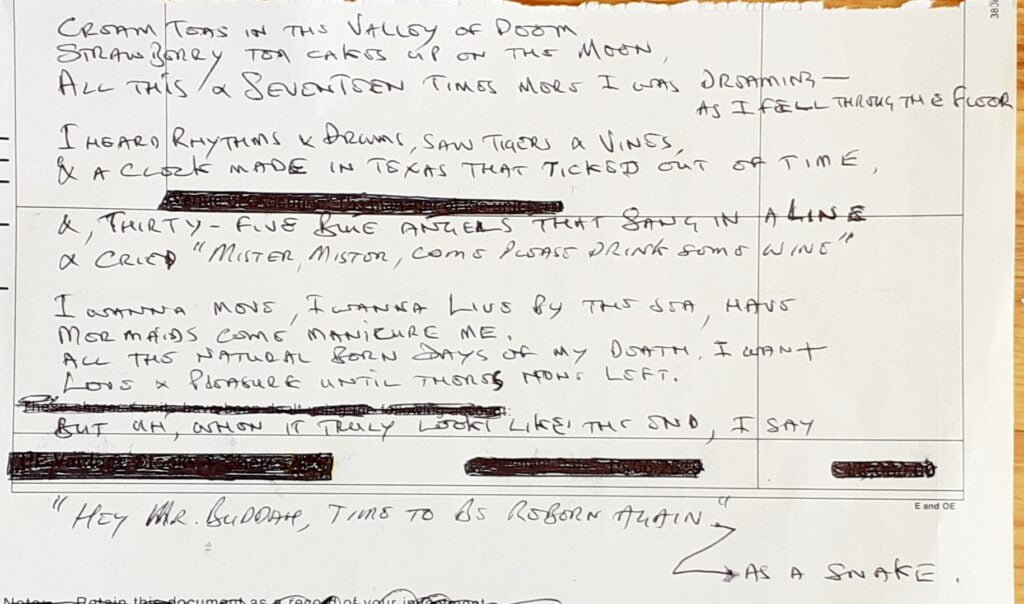 CREAM TEAS IN THE VALLEY OF DOOM
STRAWBERRY TEA CAKES UP ON THE MOON,
ALL THIS & SEVENTEEN TIMES MORE I WAS DREAMING —
AS I FELL THROUGH THE FLOOR
I HEARD RHYTHMS & DRUMS, SAW TIGERS & VINES,
& A CLOCK MADE IN TEXAS THAT TICKED OUT OF TIME,
&, THIRTY-FIVE BLUE ANGELS THAT SANG IN A LINE
& CRIED "MISTER, MISTER, COME PLEASE DRINK SOME WINE"
I WANNA MOVE, I WANNA LIVE BY THE SEA, HAVE
MERMAIDS COME MANICURE ME.
ALL THE NATURAL BORN DAYS OF MY DEATH, I WANT
LOVE & PLEASURE UNTIL THERES NONE LEFT.
These shares/units have been dealt using the following account:
BUT UH, WHEN IT TRULY LOOKS LIKE THE END, I SAY
E and OE
"HEY MR. BUDDAH, TIME TO BE REBORN AGAIN"
AS A SNAKE.
Notes: Retain this document as a record of your investment